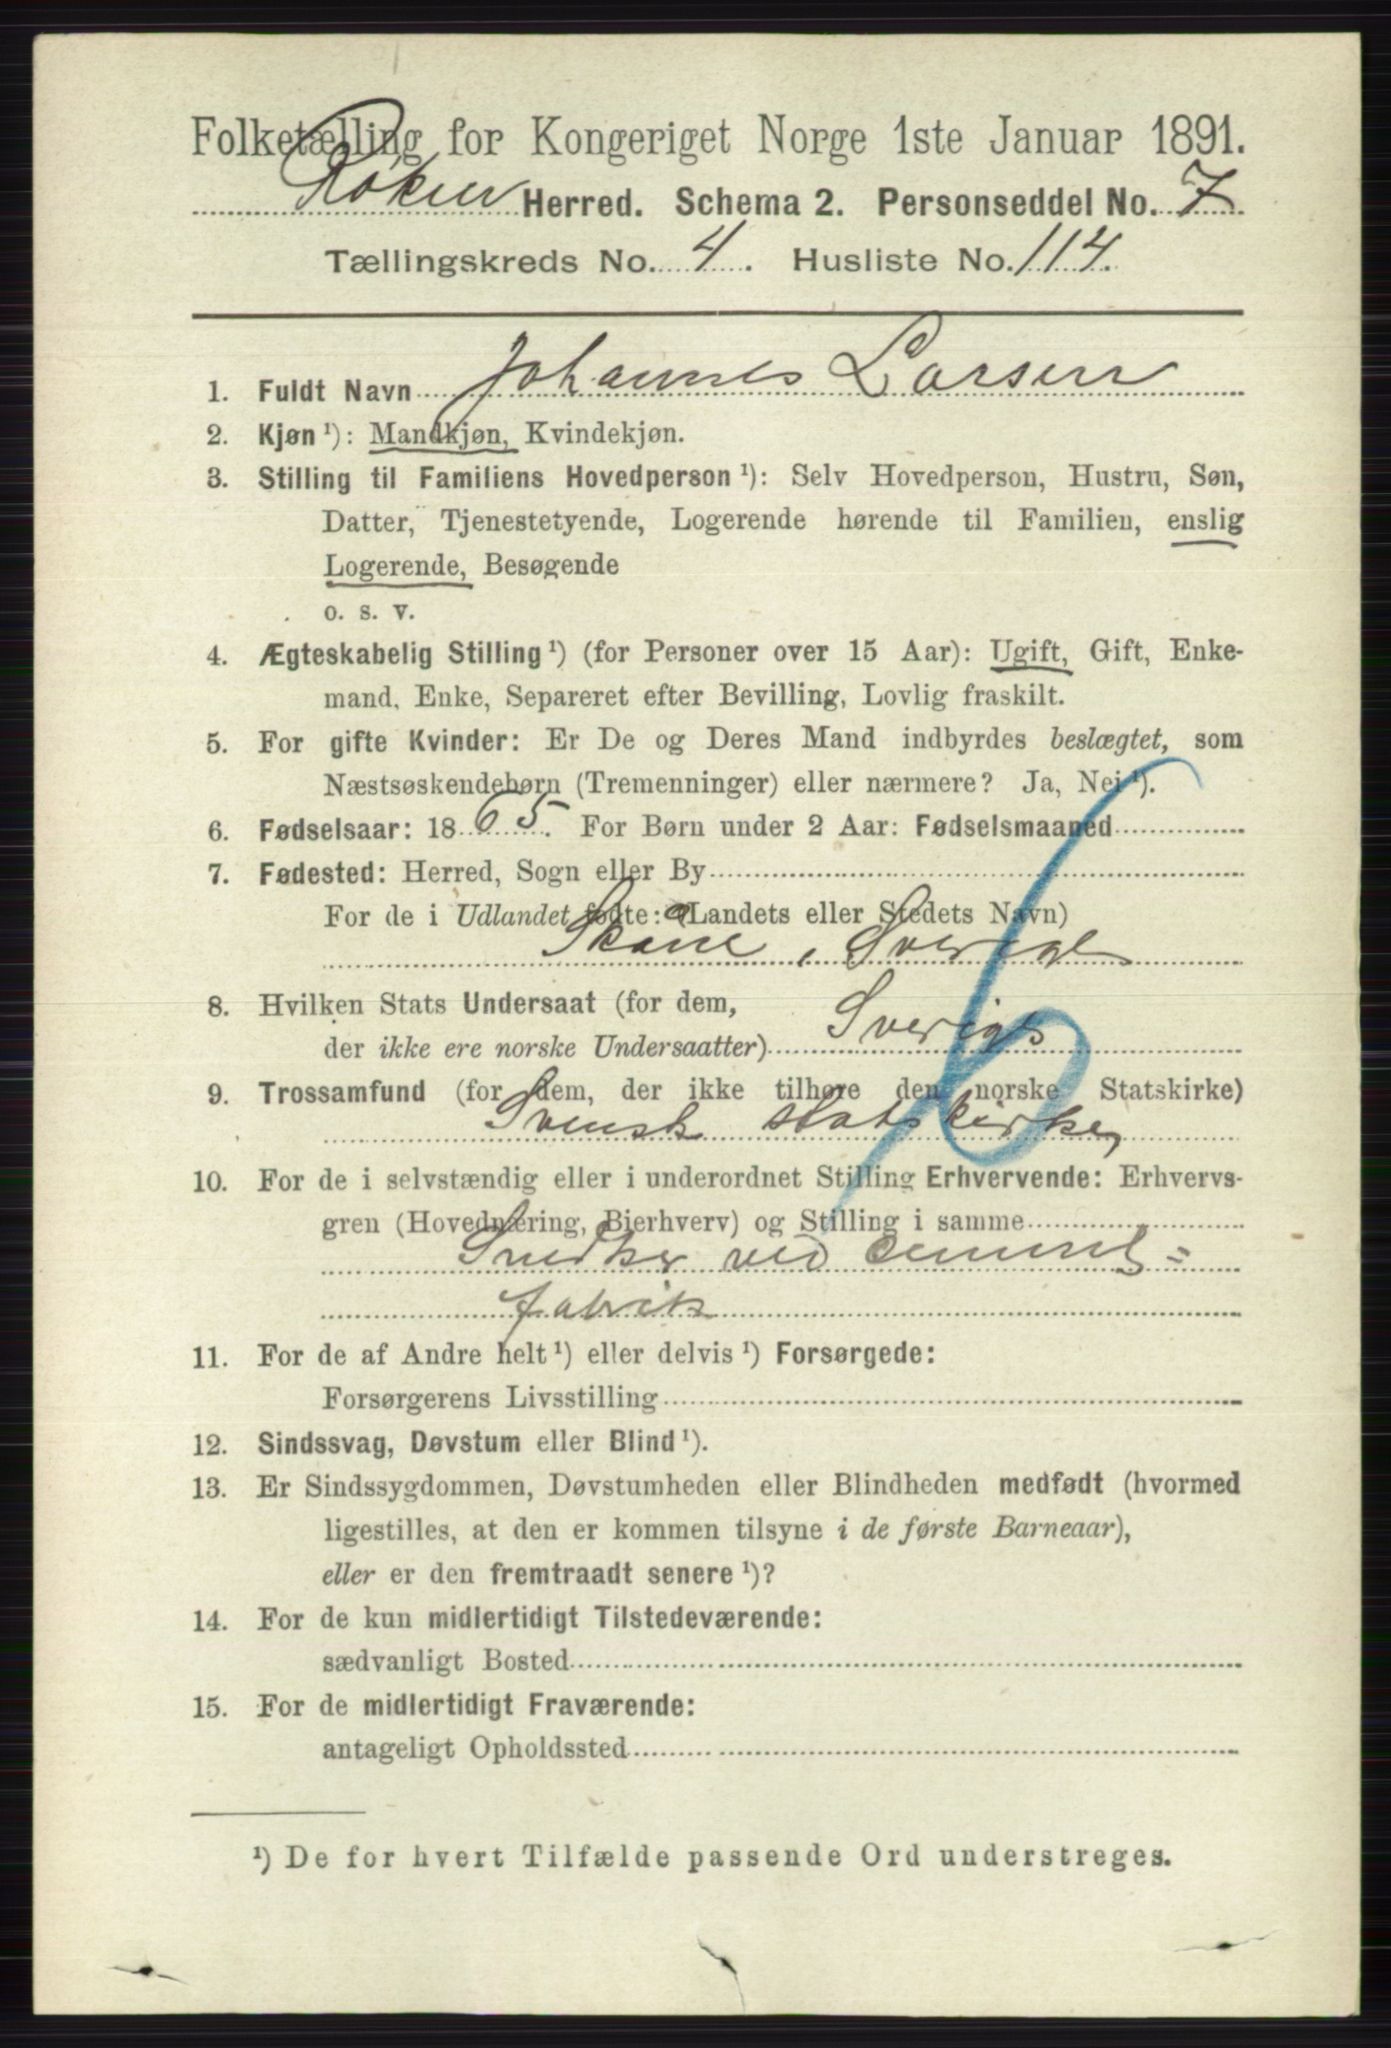 Folketælling for Kongeriget Norge 1ste Januar 1891.
Røken Herred. Schema 2. Personseddel No. 7
Tællingskreds No. 4. Husliste No. 114.
1. Fuldt Navn Johannes Larsen
2. Kjøn ¹): Mandkjøn, Kvindekjøn.
3. Stilling til Familiens Hovedperson ¹): Selv Hovedperson, Hustru, Søn,
Datter, Tjenestetyende, Logerende hørende til Familien, enslig
Logerende, Besøgende
o. s. v.
4. Ægteskabelig Stilling ¹) (for Personer over 15 Aar): Ugift, Gift, Enke-
mand, Enke, Separeret efter Bevilling, Lovlig fraskilt.
5. For gifte Kvinder: Er De og Deres Mand indbyrdes beslægtet, som
Næstsøskendebørn (Tremenninger) eller nærmere? Ja, Nei ¹).
6. Fødselsaar: 1865. For Børn under 2 Aar: Fødselsmaaned
7. Fødested: Herred, Sogn eller By
For de i Udlandet fødte: (Landets eller Stedets Navn)
Skåne, Sverige
8. Hvilken Stats Undersaat (for dem,
der ikke ere norske Undersaatter) Sveriges
9. Trossamfund (for dem, der ikke tilhøre den norske Statskirke)
Svensk statskirke
10. For de i selvstændig eller i underordnet Stilling Erhvervende: Erhvervs-
gren (Hovednæring, Bierhverv) og Stilling i samme
Snedker ved cement=
fabrik
11. For de af Andre helt ¹) eller delvis ¹) Forsørgede:
Forsørgerens Livsstilling
12. Sindssvag, Døvstum eller Blind ¹).
13. Er Sindssygdommen, Døvstumheden eller Blindheden medfødt (hvormed
ligestilles, at den er kommen tilsyne i de første Barneaar),
eller er den fremtraadt senere ¹)?
14. For de kun midlertidigt Tilstedeværende:
sædvanligt Bosted
15. For de midlertidigt Fraværende:
antageligt Opholdssted
¹) De for hvert Tilfælde passende Ord understreges.